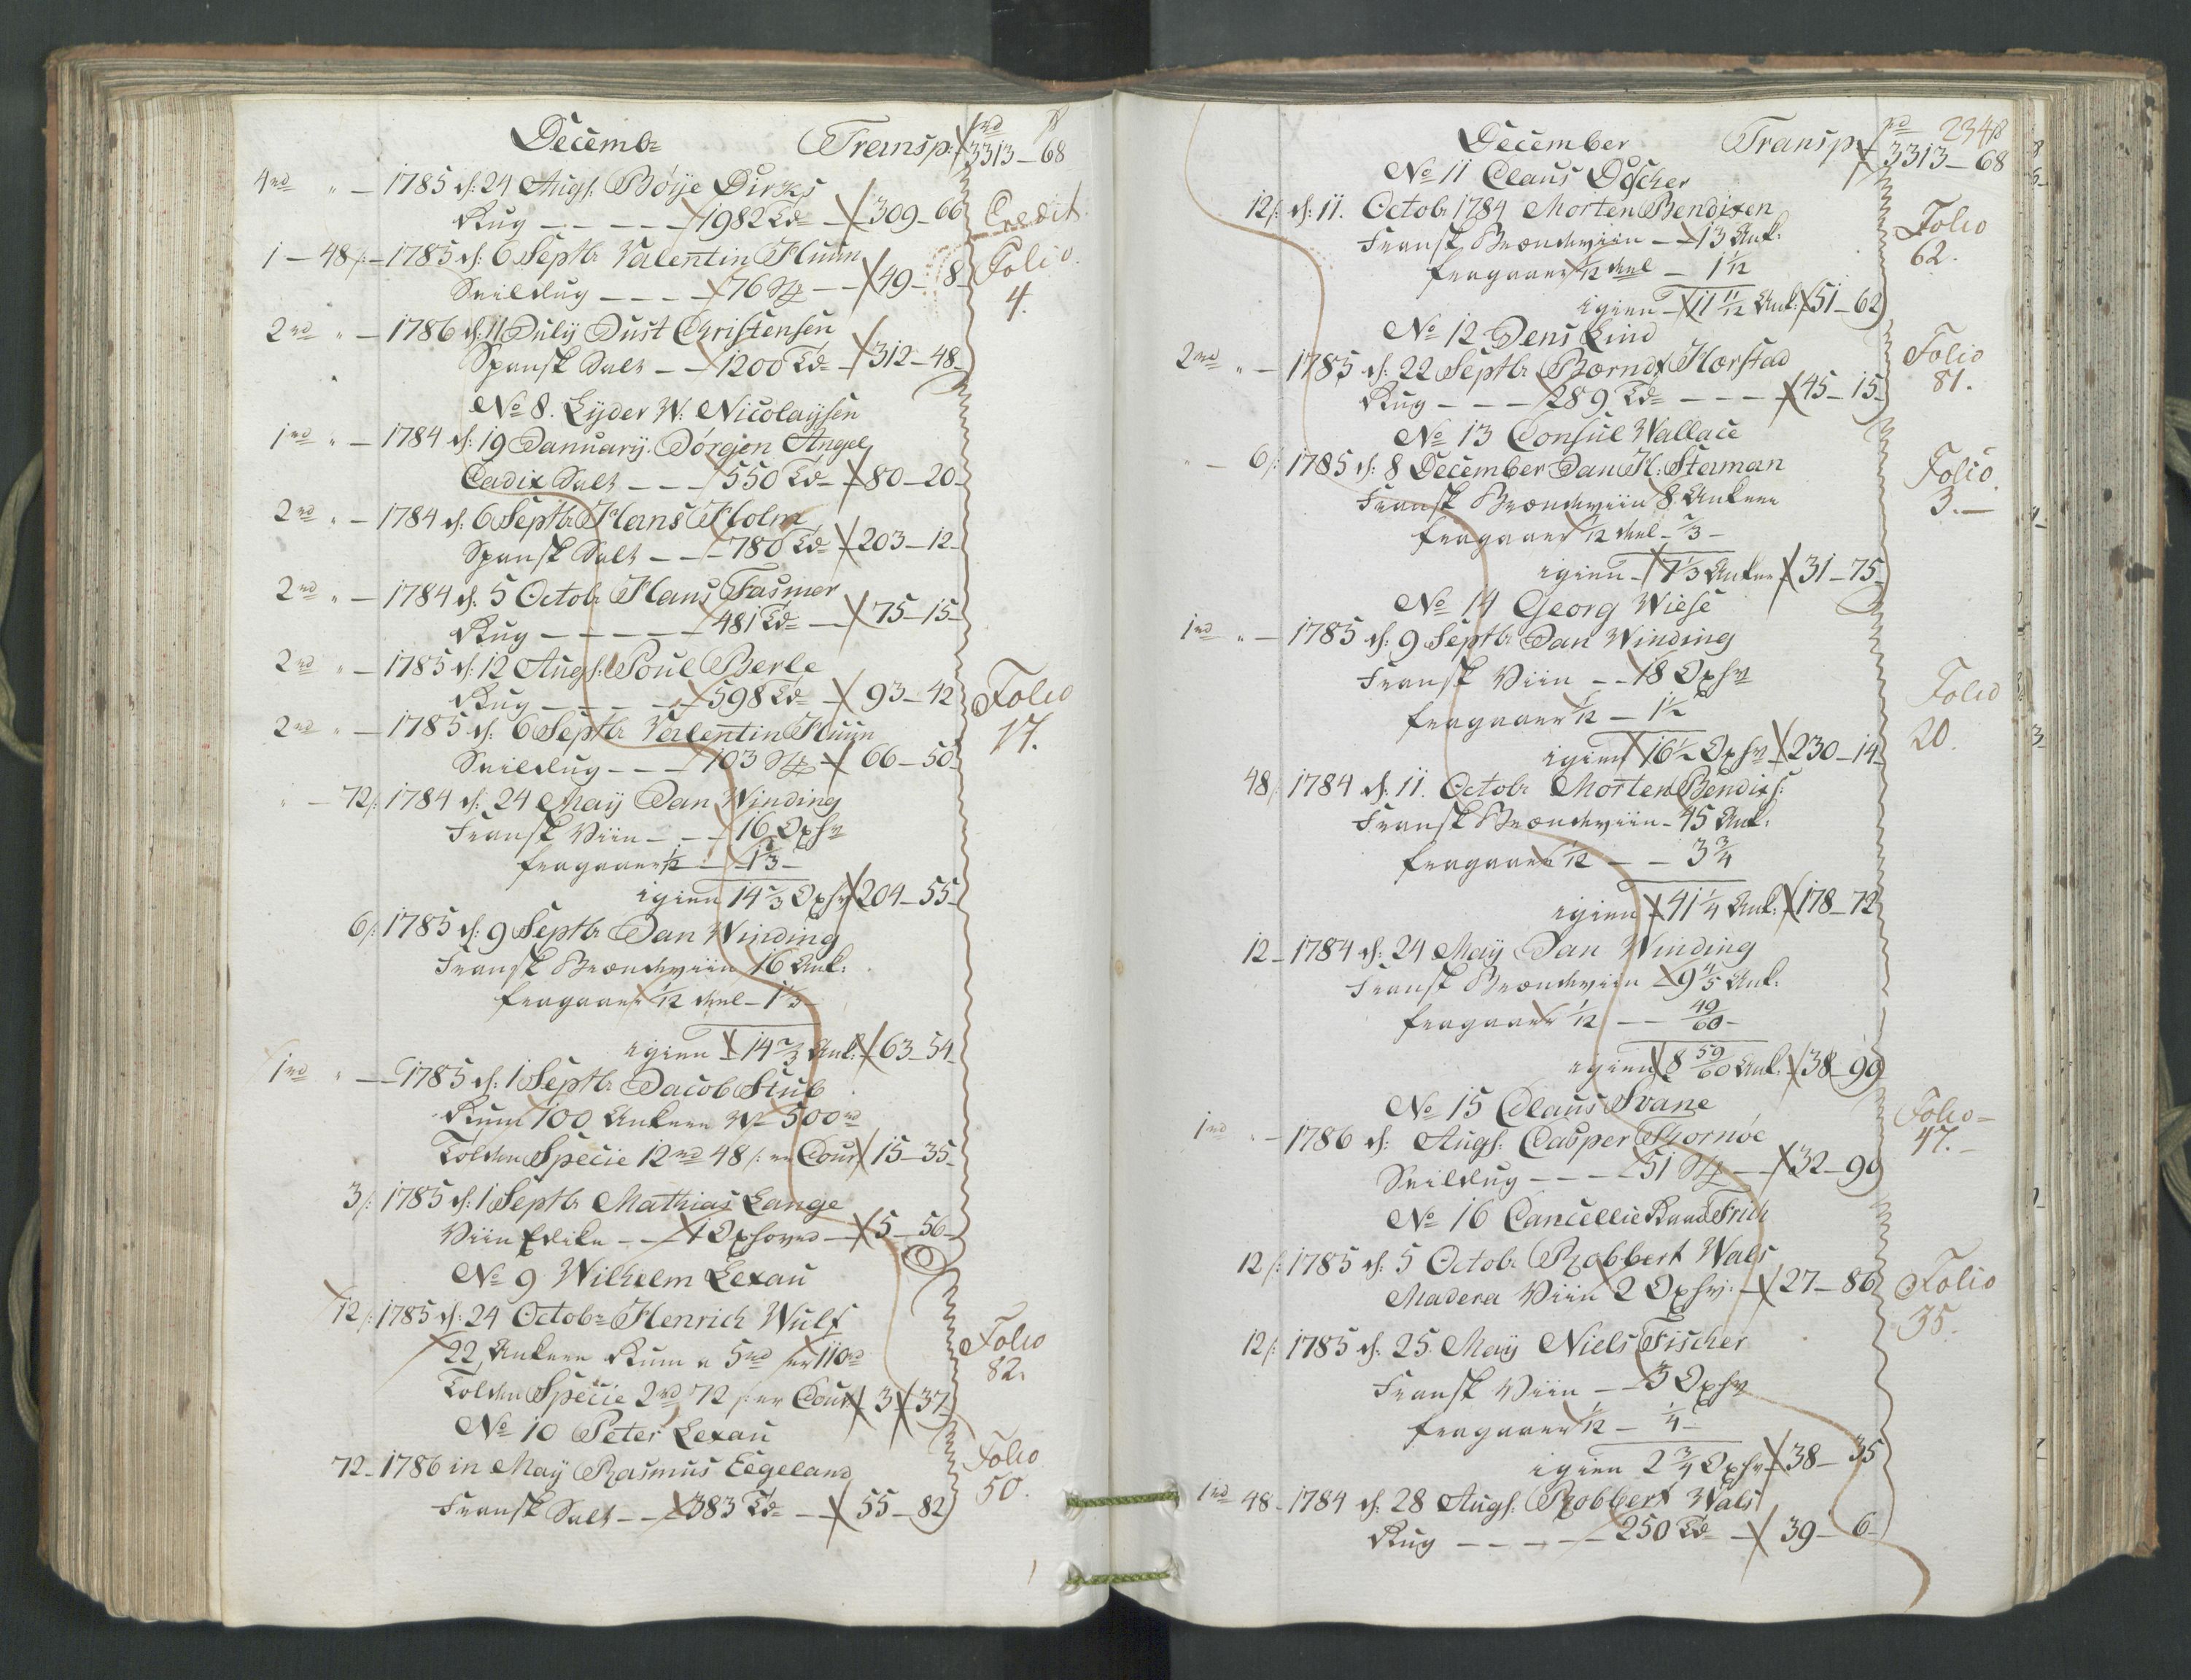 Decembr Transp: rd 3313 - 68 ß
4 rd " - 1785 d: 24 Augs: Böÿe Dirks
Rug - - - - 1982 Td - 309 - 66 Credit
1 - 48 ß: - 1785 d: 6 Septbr Valentin Fluun
Seildug - - - - 76 - - 49 - 8 Folio 4.
2 rd " - 1786 d: 11 Julÿ Just Christensen
Spansk Salt - - 1200 Td - 312 - 48
No 8. Eÿder W: Nicolaÿsen
1 rd " - 1784 d: 19 Januarÿ Jörgen Angel
Cadix Salt - - - 550 Td - 80 - 20
2 rd " - 1784 d: 6 Septbr Hans Holm
Spansk Salt - - - 780 Td - 203 - 12
2 rd " - 1784 d: 5 Octobr Hans Fasmer
Rug - - - - - 481 Td - 75 - 15
2 rd " - 1785 d: 12 Augs: Poul Berle
Rug - - - - 598 Td - 93 - 42 Folio
2 rd " - 1785 d: 6 Septbr Valentin Fluun 17.
Seildug - - - 103 - 66 - 50
" - 72 ß: 1784 d: 24 Maÿ Jan Winding
Fransk Viin - - - 16 Oxhv
fragaaer 1/12 - 1 1/3 -
igien 14 2/3 Oxhv 204 - 55
6 ß: 1785 d: 9 Septbr Jan Winding
Fransk Brændeviin 16 Ank:
fragaaer 1/12 deel - 1 1/3
igien - 14 2/3 Ank: - 63 - 54
1 rd " - 1785 d: 1 Septbr Jacob Stub
Rum 100 Ankere 500 rd
Tolden Specie 12 rd 48 ß: er Cour 15 - 35
3 ß: 1785 d: 1 Septbr Mathias Lange
Viin Edike - - - 1 Oxhoved - 5 - 56
No 9 Wilhelm Lexau
12 ß: 1785 d: 24 Octobr Henrich Wulf
22 Ankere Rum a 5 rd er 110 rd Folio 82.
Tolden Specie 2 rd 72 ß: er Cour 3 - 37
No 10 Peter Lexau
72 - 1786 in Maÿ Rasmus Eegeland Folio
Fransk Salt - - 383 Td - - 55 - 82 50.
December Transp rd 3313 - 68 ß 234
No 11 Claus Döscher
12 ß: d: 11. Octobr 1784 Morten Bendixen Folio
Fransk Brændeviin - - 13 Ank: 62.
fragaaer 1/12 deel - 1 1/12
igien - 11 11/12 Ank: 51 - 62
No 12 Jens Lind
2 rd " - 1785 d: 22 Septbr Børnd Horstad Folio
Rug - - - 289 Td - - - 45 - 15 81.
No 13 Consul Wallace
" - 6 ß: 1785 d: 8 December Jan H: Staman Folio
Fransk Brændeviin 8 Ankere 3. -
fragaaer 1/12 deel - 2/3 -
igien - 7 1/3 Ankere 31 - 75
No 14 Georg Wiese
1 rd " - 1785 d: 9 Septbr Jan Winding
Fransk Viin - - 18 Oxhv Folio
fragaaer 1/12 - 1 1/2
igien 16 1/2 Oxhv 230 - 14 20.
48 ß: 1784 d: 11. Octobr Morten Bendixs:
Fransk Brændeviin - 45 Ank:
fragaaer 1/12 - - 3 3/4
igien 41 1/4 Ank: 178 - 72
12 - 1784 d: 24 Maÿ Jan Winding
Fransk Brændeviin 9 4/5 Ank:
fragaaer 1/12 - - 49/60 -
igien 8 59/60 Ank: 38 - 90
No 15 Claus Svane Folio -
1 rd " - 1786 d: Augs: Casper Kornöe 47. -
Seildug - - - - 51 - 32 - 90
No 16 Cancellie Raad Frich
12 ß: 1785 d: 5 Octobr Robbert Wals
Madera Viin 2 Oxhv: - 27 - 86 Folio
12 ß: 1785 d: 25 Maÿ Niels Fischer 35.
Fransk Viin - - 3 Oxhv
fragaaer 1/12 - 1/4 -
igien 2 3/4 Oxhv 38 - 35
1 rd 48 - 1784 d: 28 Augs: Robbert Wals
Rug - - - - 250 Td - 39 - 6